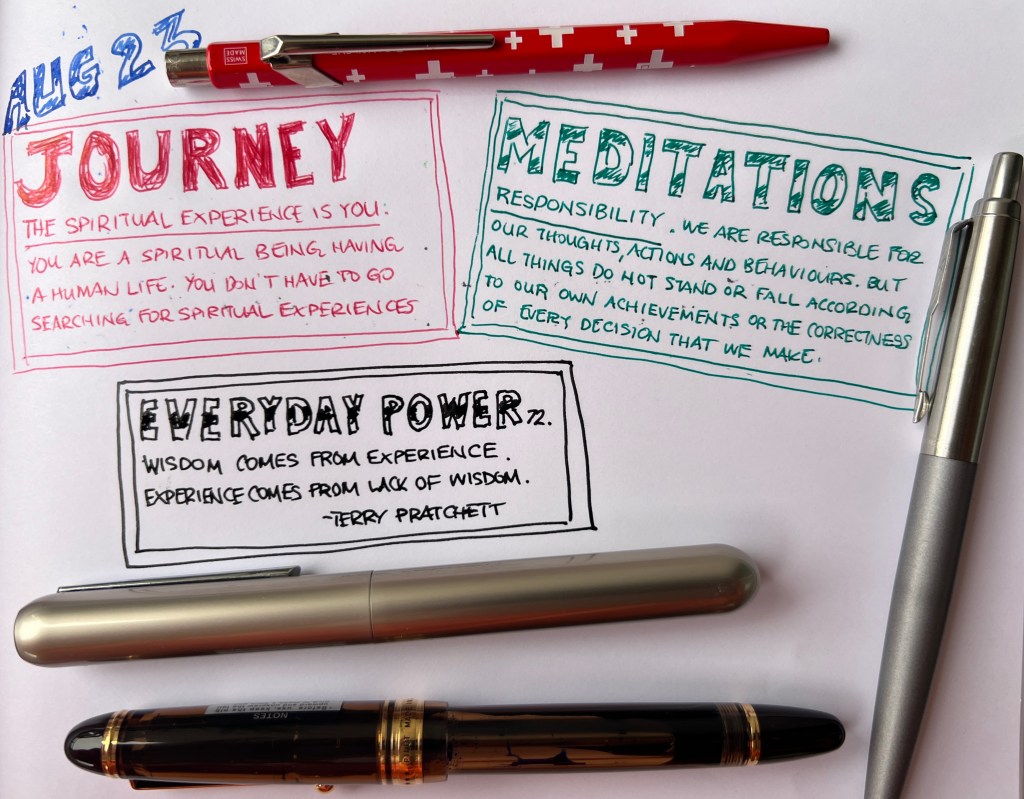 AUG 23
SWISS MADE
JOURNEY
THE SPIRITUAL EXPERIENCE IS YOU:
YOU ARE A SPIRITUAL BEING HAVING
A HUMAN LIFE. YOU DON'T HAVE TO GO
SEARCHING FOR SPIRITUAL EXPERIENCES
MEDITATIONS
RESPONSIBILITY. WE ARE RESPONSIBLE FOR
OUR THOUGHTS, ACTIONS AND BEHAVIOURS. BUT
ALL THINGS DO NOT STAND OR FALL ACCORDING
TO OUR OWN ACHIEVEMENTS OR THE CORRECTNESS
OF EVERY DECISION THAT WE MAKE.
EVERYDAY POWER 72.
WISDOM COMES FROM EXPERIENCE.
EXPERIENCE COMES FROM LACK OF WISDOM.
~TERRY PRATCHETT
NOTES